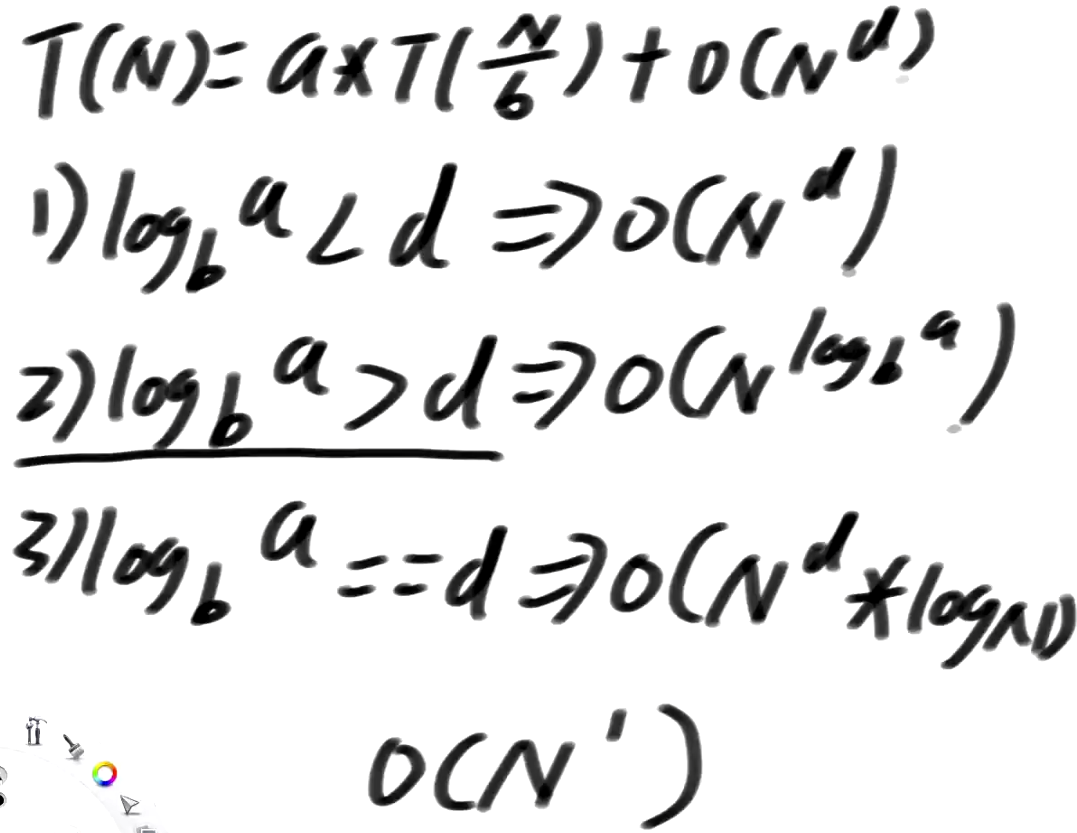 T(N)=a*T(N/b)+O(N^d)
1) log_b^a < d => O(N^d)
2) log_b^a > d => O(N^(log_b^a))
3) log_b^a == d => O(N^d * logN)
O(N^1)